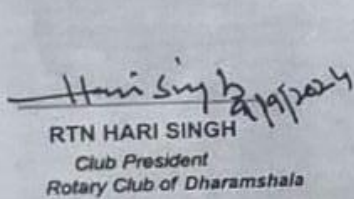 Hari Singh 4/9/2024
RTN HARI SINGH
Club President
Rotary Club of Dharamshala